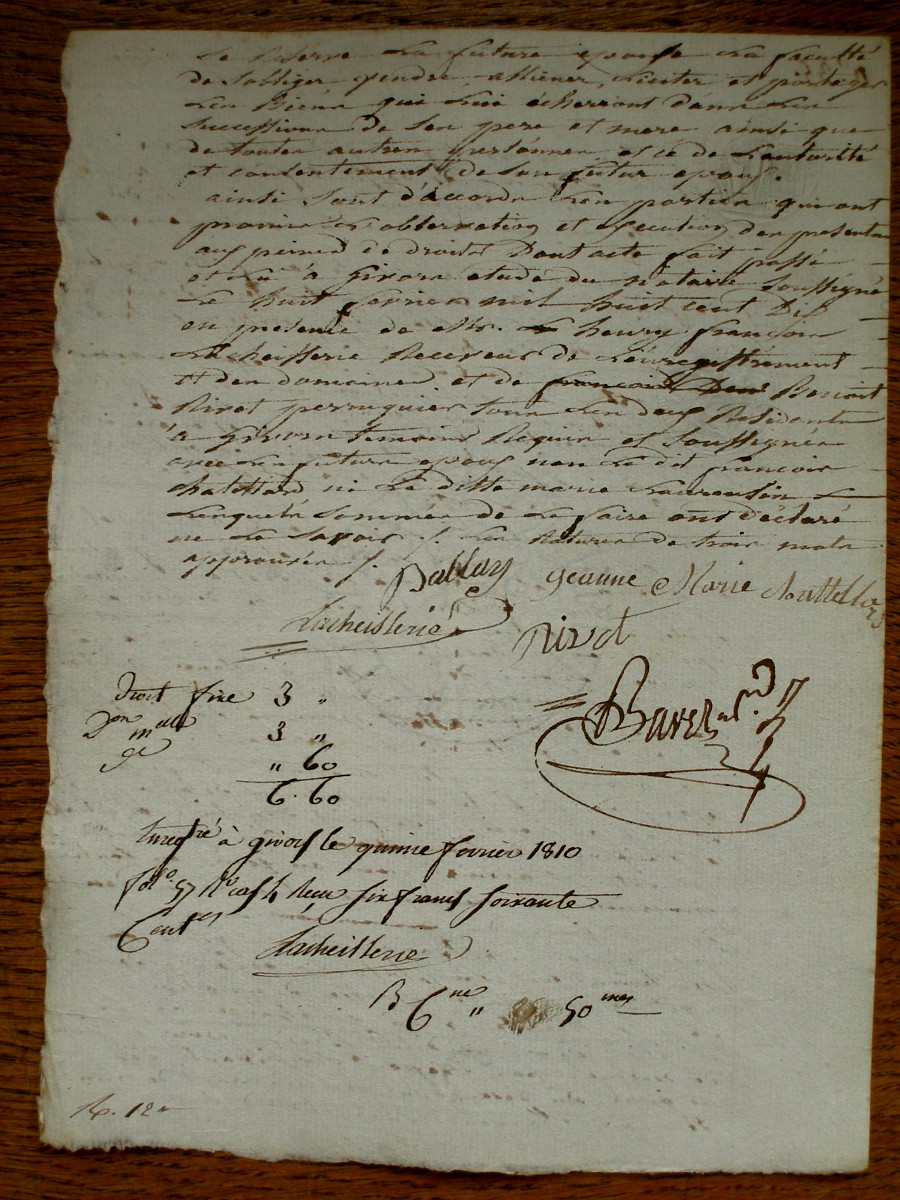 Se Reserve La future epouse La faculté
de Sobliger vendre, alliener, Liciter et partager
Les Biens qui Lui écherront dans Les
Successions de Son pere et mere ainsi que
de toutes autres personnes et ce de Lautorité
et consentement de Son futur epoux.
ainsi Sont d'accords Les parties qui ont
promis L'observation et execution des presentes
aux peines de droits Dont acte fait passé
et Lu à Givors etude du Notaire Soussigné
Le huit fevrier mil huit cent Dix
en presence de Mr. henry françois
Lacheisserie Receveur de Lenregistrement
et des domaines et de Benoit
Rivot perruquier tous Les deux Residents
à Givors temoins Requis et Soussignes
avec Les futurs epoux non Le dit françois
chatellard ni La ditte marie
Lesquels Sommés de Le faire ont déclaré
ne Le Savoir /. Les Ratures de trois mots
approuvées /.
Ballay Jeanne Marie
Lacheisserie Rivot
Droit fixe 3 "
Don mel 3 "
" 60
6. 60
Enregtré à givors le quinze fevrier 1810
fol. 57 Ro cas 4 Reçu six francs soixante
Centes
Lacheisserie
50 mes
R. 12